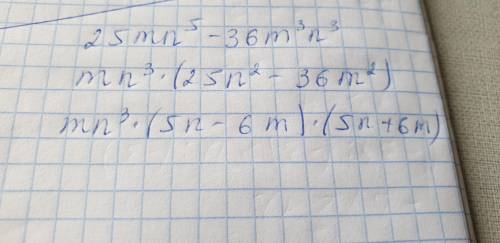 25mn⁵ - 36m³n³
mn³·(25n² - 36m²)
mn³·(5n - 6m)·(5n+6m)